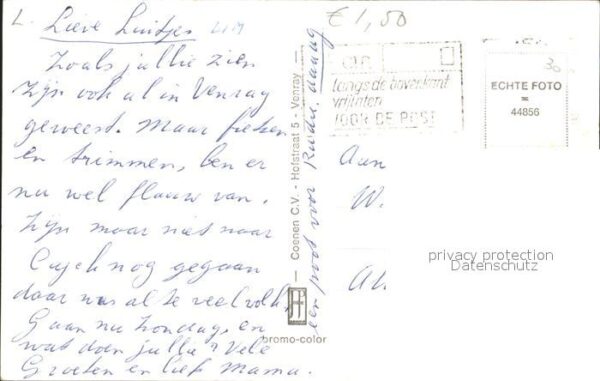 L. Lieve Luitjes
Zoals jullie zien
Zijn ook al in Venray
geweest. Maar fietsen
en trimmen, ben er
nu wel flauw van.
Zijn maar niet naar
Cuyck nog gegaan
daar was al te veel volk.
Gaan nu Zondags, en
wat doen jullie? Vele
Groeten en liefs Mama.
een poot voor daaag
Coenen C.V. - Hofstraat 5 - Venray -
promo-color
€ 1,50
langs de bovenkant
vrijlaten
VOOR DE POST
30
ECHTE FOTO
44856
Aan
W.
privacy protection
Datenschutz